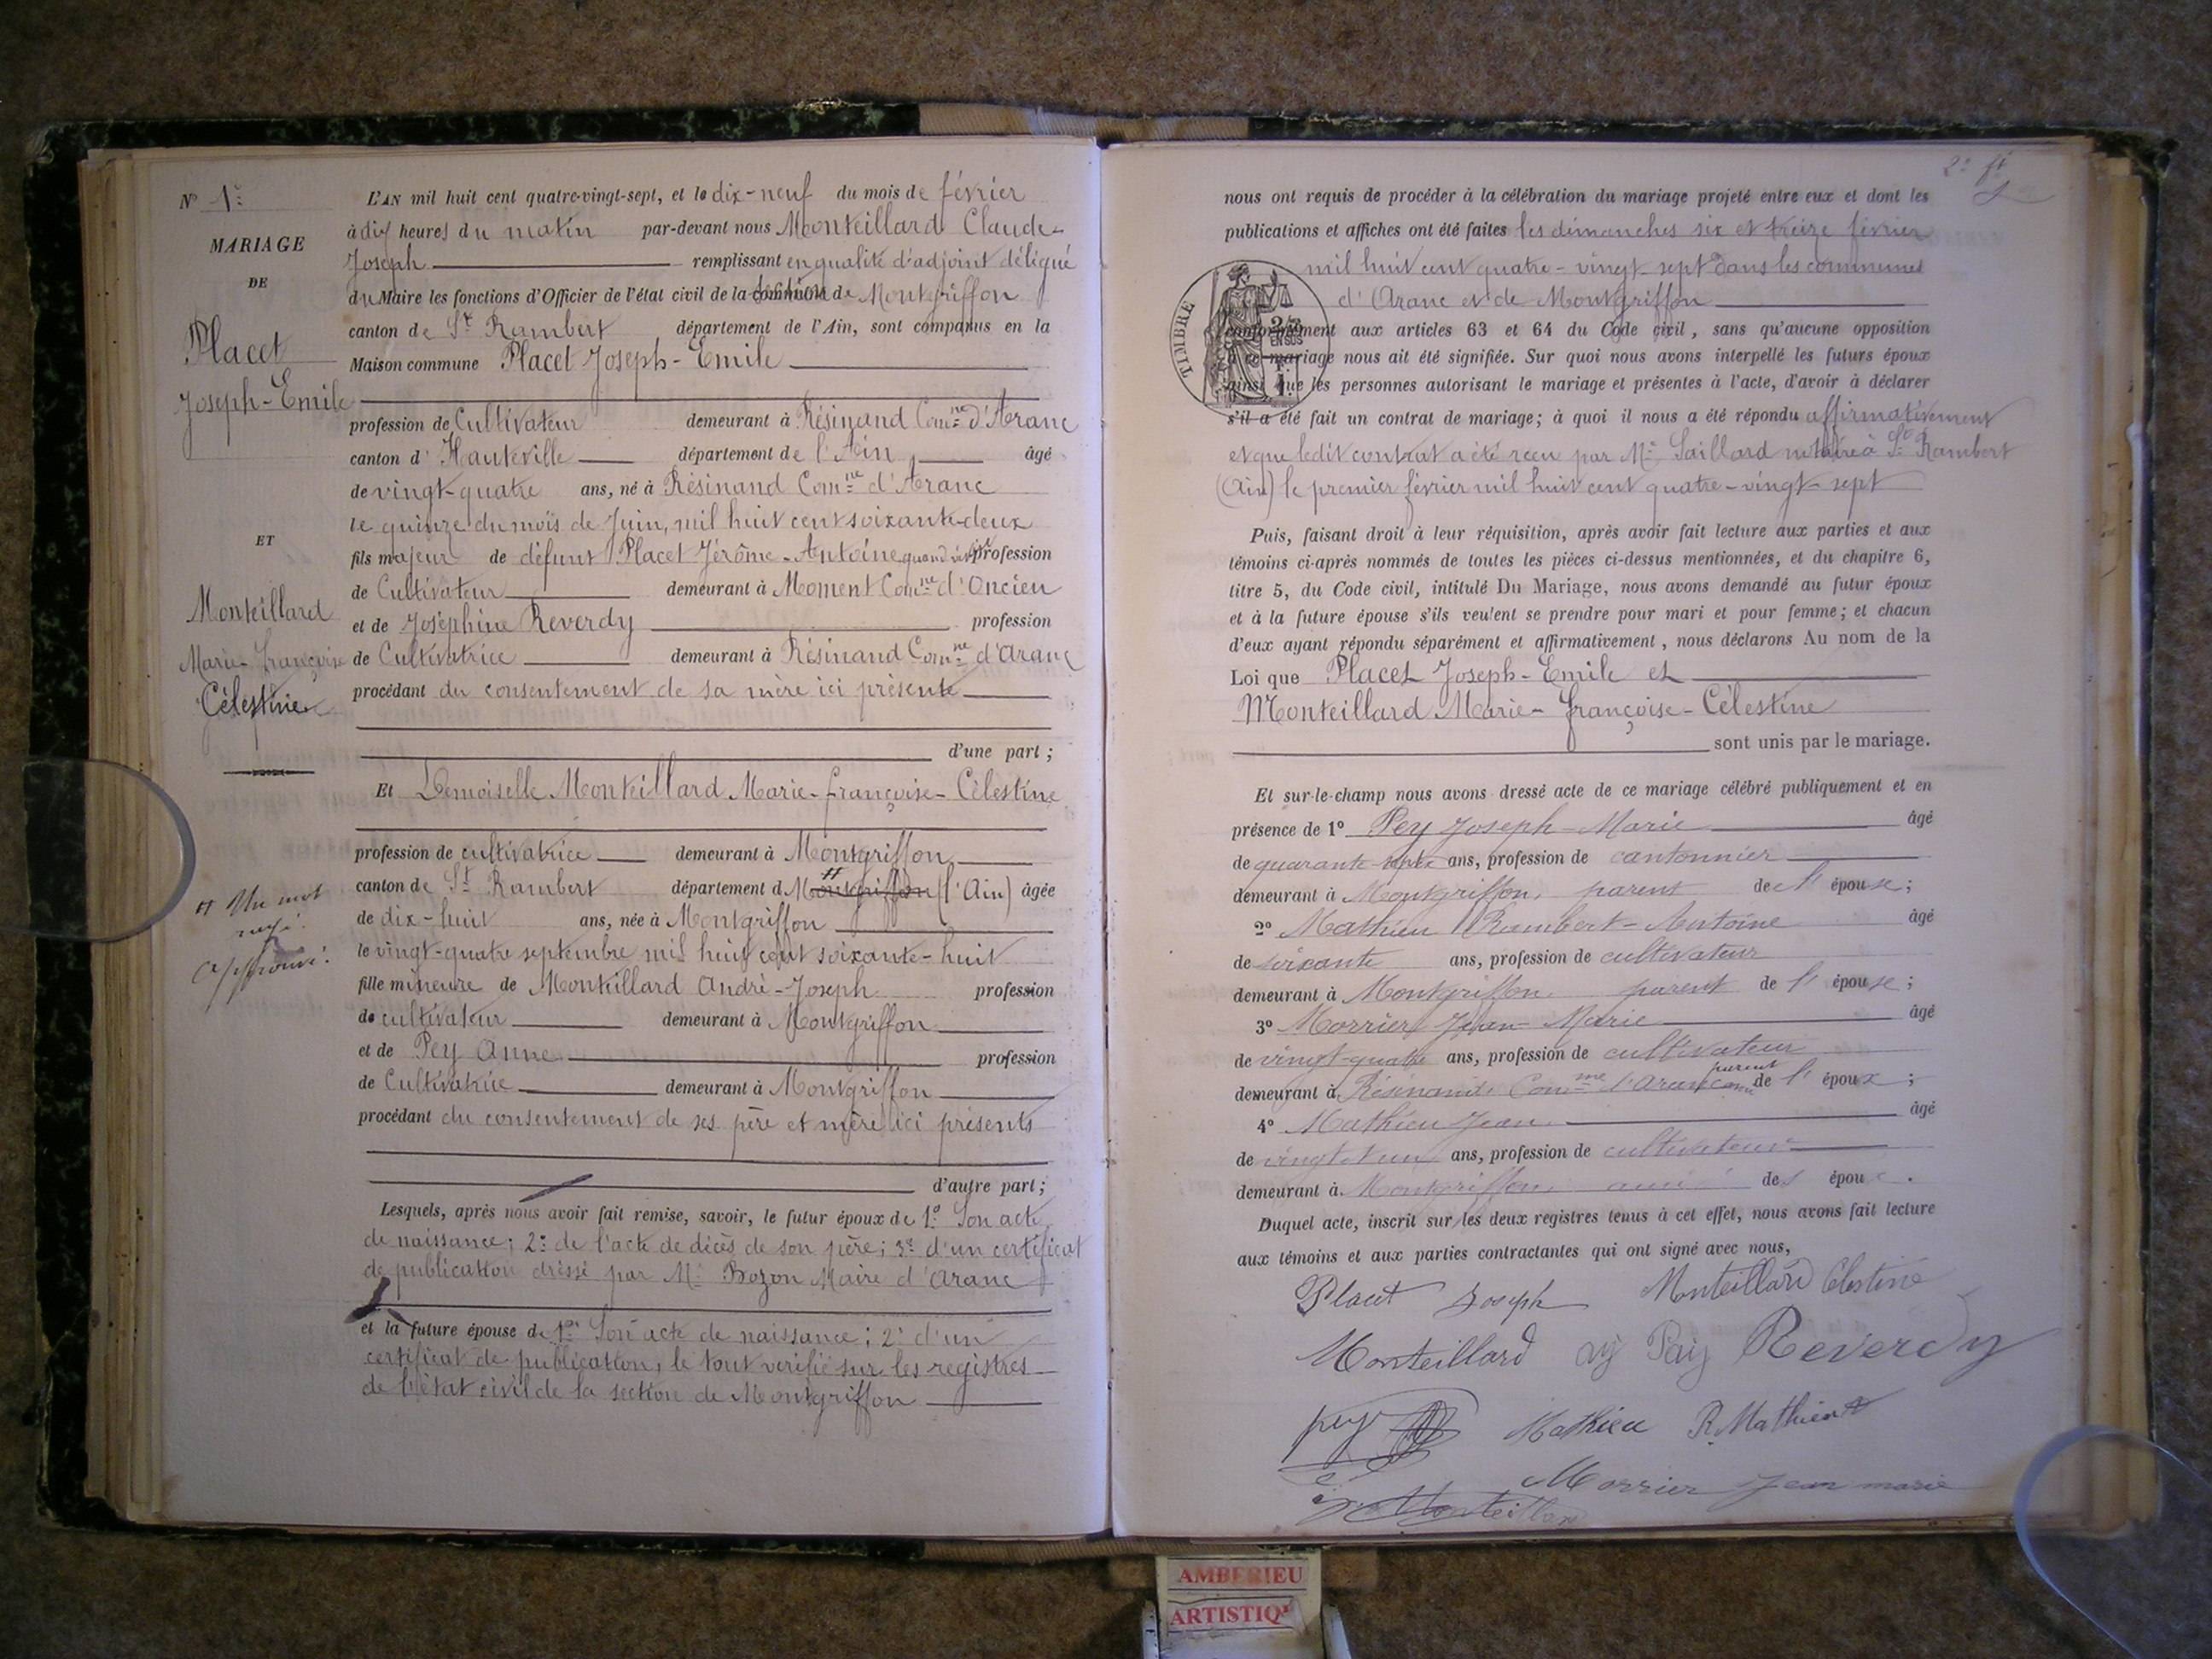 N° 1:
MARIAGE
DE
Placet
Joseph-Emile
ET
Monteillard
Marie-Françoise
Célestine
Un mot
rayé.
Approuvé:
L'AN mil huit cent quatre-vingt-sept, et le dix-neuf du mois de février
à dix heures du matin par-devant nous Monteillard Claude-
Joseph remplissant en qualité d'adjoint délégué
du Maire les fonctions d'Officier de l'état civil de la commune section de Montgriffon
canton de St Rambert département de l'Ain, sont comparus en la
Maison commune Placet Joseph-Emile
profession de Cultivateur demeurant à Résinand Comne d'Aranc
canton d'Hauteville département de l'Ain, âgé
de vingt-quatre ans, né à Résinand Comne d'Aranc
le quinze du mois de Juin, mil huit cent soixante-deux
fils majeur de défunt Placet Jérôme-Antoine quand vivait profession
de Cultivateur demeurant à Moment Comne d'Oncieu
et de Joséphine Reverdy profession
de Cultivatrice demeurant à Résinand Comne d'Aranc
procédant du consentement de sa mère ici présente
d'une part;
Et Demoiselle Monteillard Marie-Françoise-Célestine
profession de cultivatrice demeurant à Montgriffon
canton de St Rambert département d Montgriffon (l'Ain) âgée
de dix-huit ans, née à Montgriffon
le vingt-quatre septembre mil huit cent soixante-huit
fille mineure de Monteillard André-Joseph profession
de cultivateur demeurant à Montgriffon
et de Pey Anne profession
de Cultivatrice demeurant à Montgriffon
procédant du consentement de ses père et mère ici présents
d'autre part;
Lesquels, après nous avoir fait remise, savoir, le futur époux de 1° Son acte
de naissance; 2° de l'acte de décès de son père; 3° d'un certificat
de publication dressé par Mr Bozon Maire d'Aranc
et la future épouse de 1° Son acte de naissance; 2° d'un
certificat de publication, le tout vérifié sur les registres
de l'état civil de la section de Montgriffon
nous ont requis de procéder à la célébration du mariage projeté entre eux et dont les
publications et affiches ont été faites les dimanches six et treize février
mil huit cent quatre-vingt-sept dans les communes
d'Aranc et de Montgriffon
TIMBRE
2/10
EN SUS
conformément aux articles 63 et 64 du Code civil, sans qu'aucune opposition
à ce mariage nous ait été signifiée. Sur quoi nous avons interpellé les futurs époux
ainsi que les personnes autorisant le mariage et présentes à l'acte, d'avoir à déclarer
s'il a été fait un contrat de mariage; à quoi il nous a été répondu affirmativement
et que ledit contrat a été reçu par Me Saillard notaire à St Rambert
(Ain) le premier février mil huit cent quatre-vingt-sept
Puis, faisant droit à leur réquisition, après avoir fait lecture aux parties et aux
témoins ci-après nommés de toutes les pièces ci-dessus mentionnées, et du chapitre 6,
titre 5, du Code civil, intitulé Du Mariage, nous avons demandé au futur époux
et à la future épouse s'ils veulent se prendre pour mari et pour femme; et chacun
d'eux ayant répondu séparément et affirmativement, nous déclarons Au nom de la
Loi que Placet Joseph-Emile et
Monteillard Marie-Françoise-Célestine
sont unis par le mariage.
Et sur-le-champ nous avons dressé acte de ce mariage célébré publiquement et en
présence de 1° Pey Joseph-Marie âgé
de quarante-sept ans, profession de cantonnier
demeurant à Montgriffon, parent de l'épouse;
2° Mathieu Rambert-Antoine âgé
de soixante ans, profession de cultivateur
demeurant à Montgriffon parent de l'épouse;
3° Morrier Jean-Marie âgé
de vingt-quatre ans, profession de cultivateur
demeurant à Résinand, Comne d'Aranc parent de l'époux;
4° Mathieu Jean âgé
de vingt-un ans, profession de cultivateur
demeurant à Montgriffon ami des époux.
Duquel acte, inscrit sur les deux registres tenus à cet effet, nous avons fait lecture
aux témoins et aux parties contractantes qui ont signé avec nous,
Placet Joseph Monteillard Célestine
Monteillard Reverdy
pey Mathieu R. Mathieu
Morrier Jean marie
Monteillard
AMBERIEU
ARTISTIQ